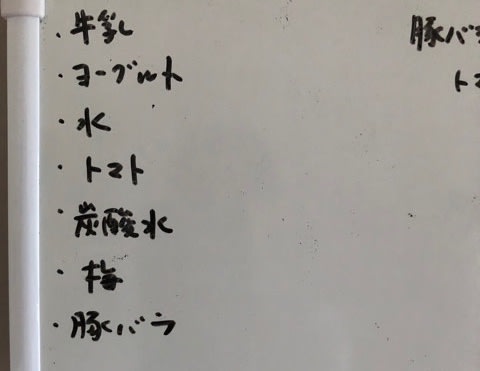 ・牛乳
・ヨーグルト
・水
・トマト
・炭酸水
・梅
・豚バラ
豚バラ
トマ